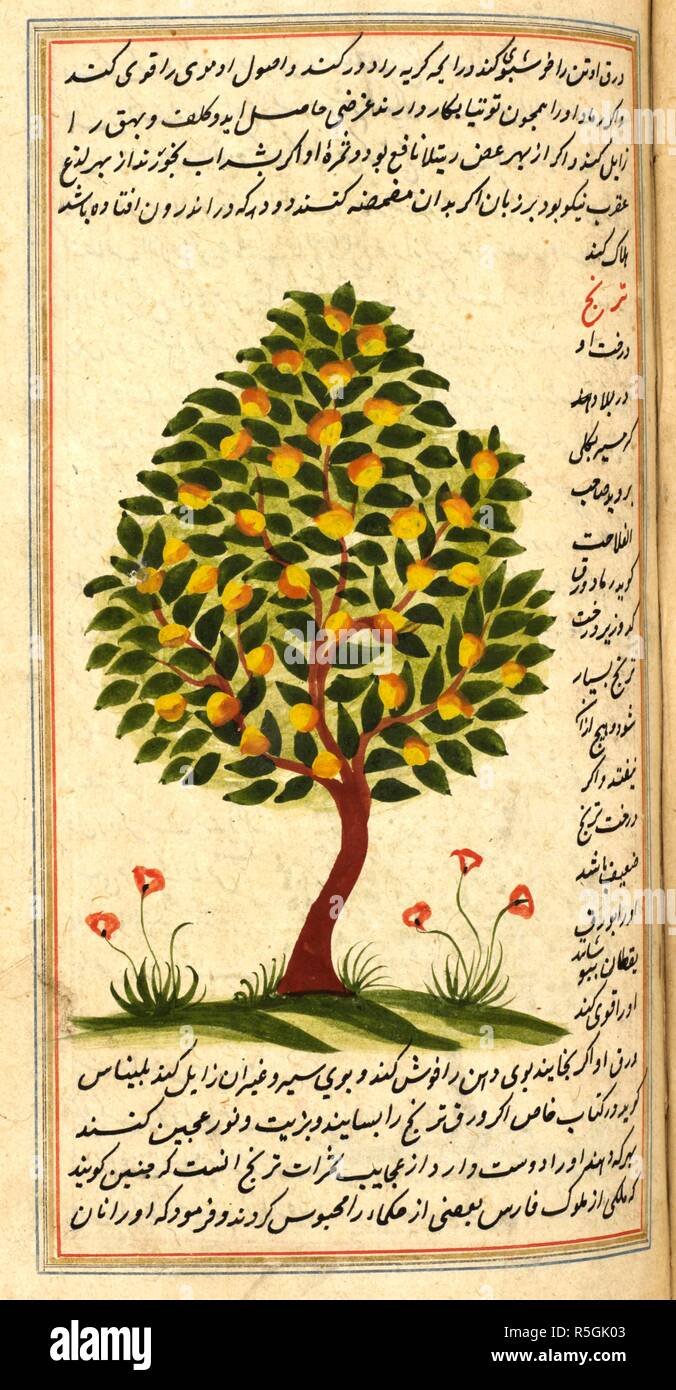 ورق او تن را خوشبوی کند و رایحه کریه را دور کند و اصول او موی را قوی کند
واکر رماد او را همچون توتیا بکار دارند غرضی حاصل اید و کلف و بهق را
زایل کند واکر از بهر عض رتیلا نافع بود و ثمرهٔ او اکر بشراب بخورند از بهر لذع
عقرب نیکو بود بر زبان اکر بدان مضمضه کنند دود که در اندرون افتاده باشد
هلاک کند
ترنج
درخت او
در بلاد
کرمسیر
بروید صاحب
الفلاحت
کوید رماد ورق
کدو زیر درخت
ترنج بسیار
شود و هیچ از ان
نیفتد واکر
درخت ترنج
ضعیف باشد
او را بورق
یقطان بپوشانند
او را قوی کند
ورق او اکر بخایند بوی دهن را خوش کند و بوی سیر و غیر ان زایل کند بلیناس
کوید در کتاب خاص اکر ورق ترنج را بسایند و بزیت و نور عجین کنند
بهر که دهند او را دوست دارد از عجایب ثمرات ترنج انست که چنین کویند
که ملکی از ملوک فارس بعضی از حکما را محبوس کردند و فرمود که او را نان
alamy
alamy
Image ID: R5GK03
www.alamy.com